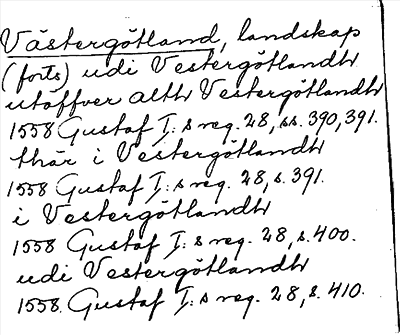 Västergötland, landskap
(forts) udi Vestergötlandh
utöffver alth Vestergötlandh
1558 Gustaf I:s reg. 28, ss. 390, 391.
thär i Vestergötlandh
1558 Gustaf I:s reg. 28, s. 391.
i Vestergötlandh
1558 Gustaf I:s reg. 28, s. 400.
udi Vestergötlandh
1558. Gustaf I:s reg. 28, s. 410.